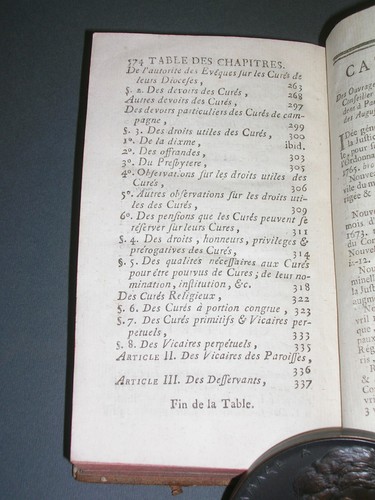 574 TABLE DES CHAPITRES.
De l'autorité des Evêques sur les Curés de
leurs Dioceses, 263
§. 2. Des devoirs des Curés, 268
Autres devoirs des Curés, 297
Des devoirs particuliers des Curés de cam-
pagne, 299
§. 3. Des droits utiles des Curés, 300
1°. De la dixme, ibid.
2°. Des offrandes, 303
3°. Du Presbytere, 305
4°. Observations sur les droits utiles des
Curés, 306
5°. Autres observations sur les droits uti-
les des Curés, 309
6°. Des pensions que les Curés peuvent se
réserver sur leurs Cures, 311
§. 4. Des droits, honneurs, privileges &
prérogatives des Curés, 314
§. 5. Des qualités nécessaires aux Curés
pour être pourvus de Cures; de leur no-
mination, institution, &c. 318
Des Curés Religieux, 322
§. 6. Des Curés à portion congrue, 323
§. 7. Des Curés primitifs & Vicaires per-
pétuels, 333
§. 8. Des Vicaires perpétuels, 335
ARTICLE II. Des Vicaires des Paroisses,
336
ARTICLE III. Des Desservants, 337
Fin de la Table.
CA
Des Ouvrag
Conseiller
dent à Par
des Augus
Idée géné
la Justic
Nouve
Nouvea
1673.
du Com
in-12.
Nouvea